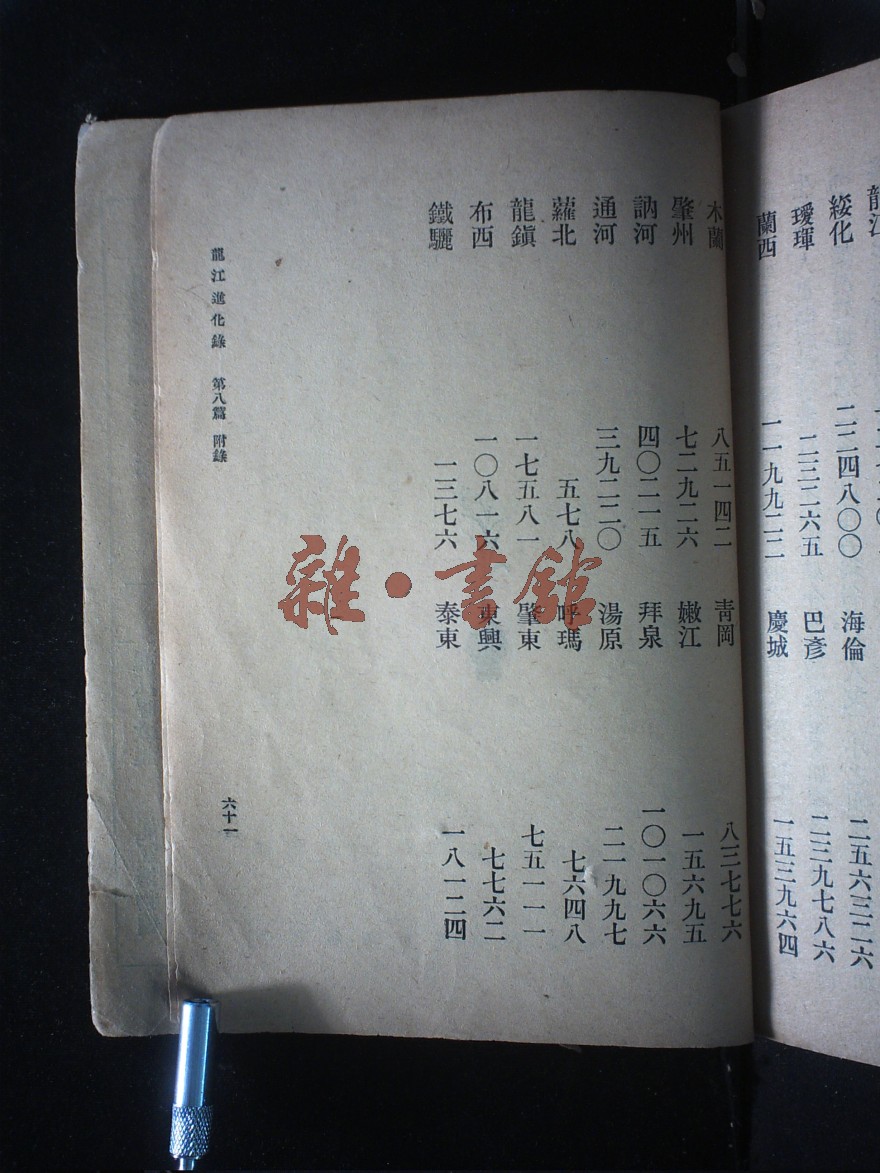 龍江
綏化 二二四八〇〇 海倫 二五六三二六
璦琿 二三二六五 巴彥 二三九七八六
蘭西 一一九九二三 慶城 一五三九六四
木蘭 八五一四二 青岡 八三七七六
肇州 七二九二六 嫩江 一五六九五
訥河 四〇二一五 拜泉 一〇一〇六六
通河 三九二二〇 湯原 二一九九七
蘿北 五七八 呼瑪 七六四八
龍鎮 一七五八一 肇東 七五一一一
布西 一〇八一六 東興 七七六二
鐵驪 一三七六 泰東 一八一二四
龍江進化錄 第八篇 附錄 六十一
雜·書館